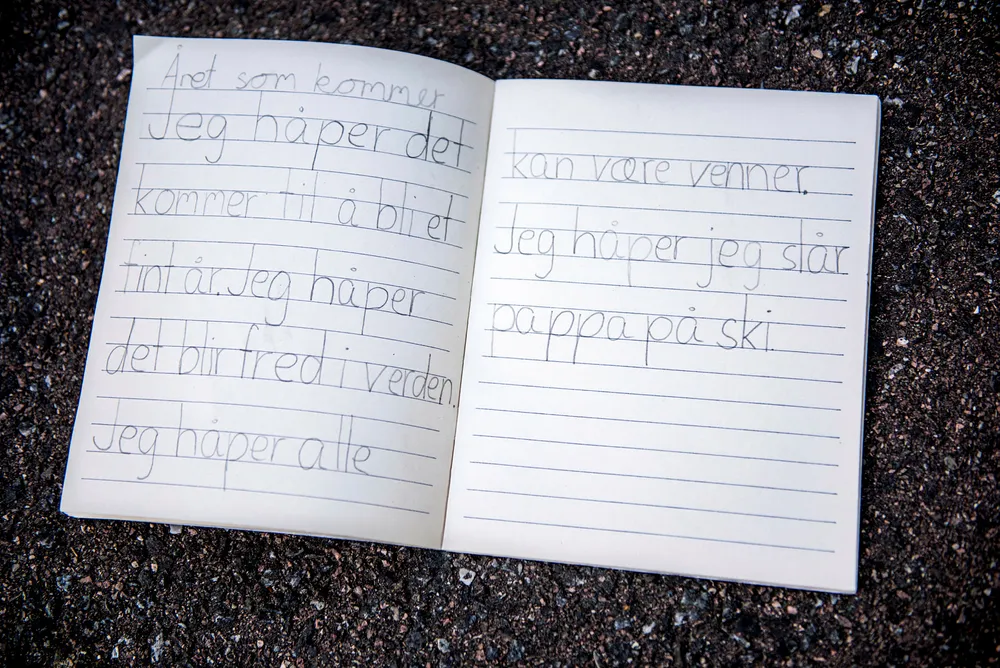 Året som kommer
Jeg håper det
kommer til å bli et
fint år. Jeg håper
det blir fred i verden.
Jeg håper alle
kan være venner.
Jeg håper jeg slår
pappa på ski.